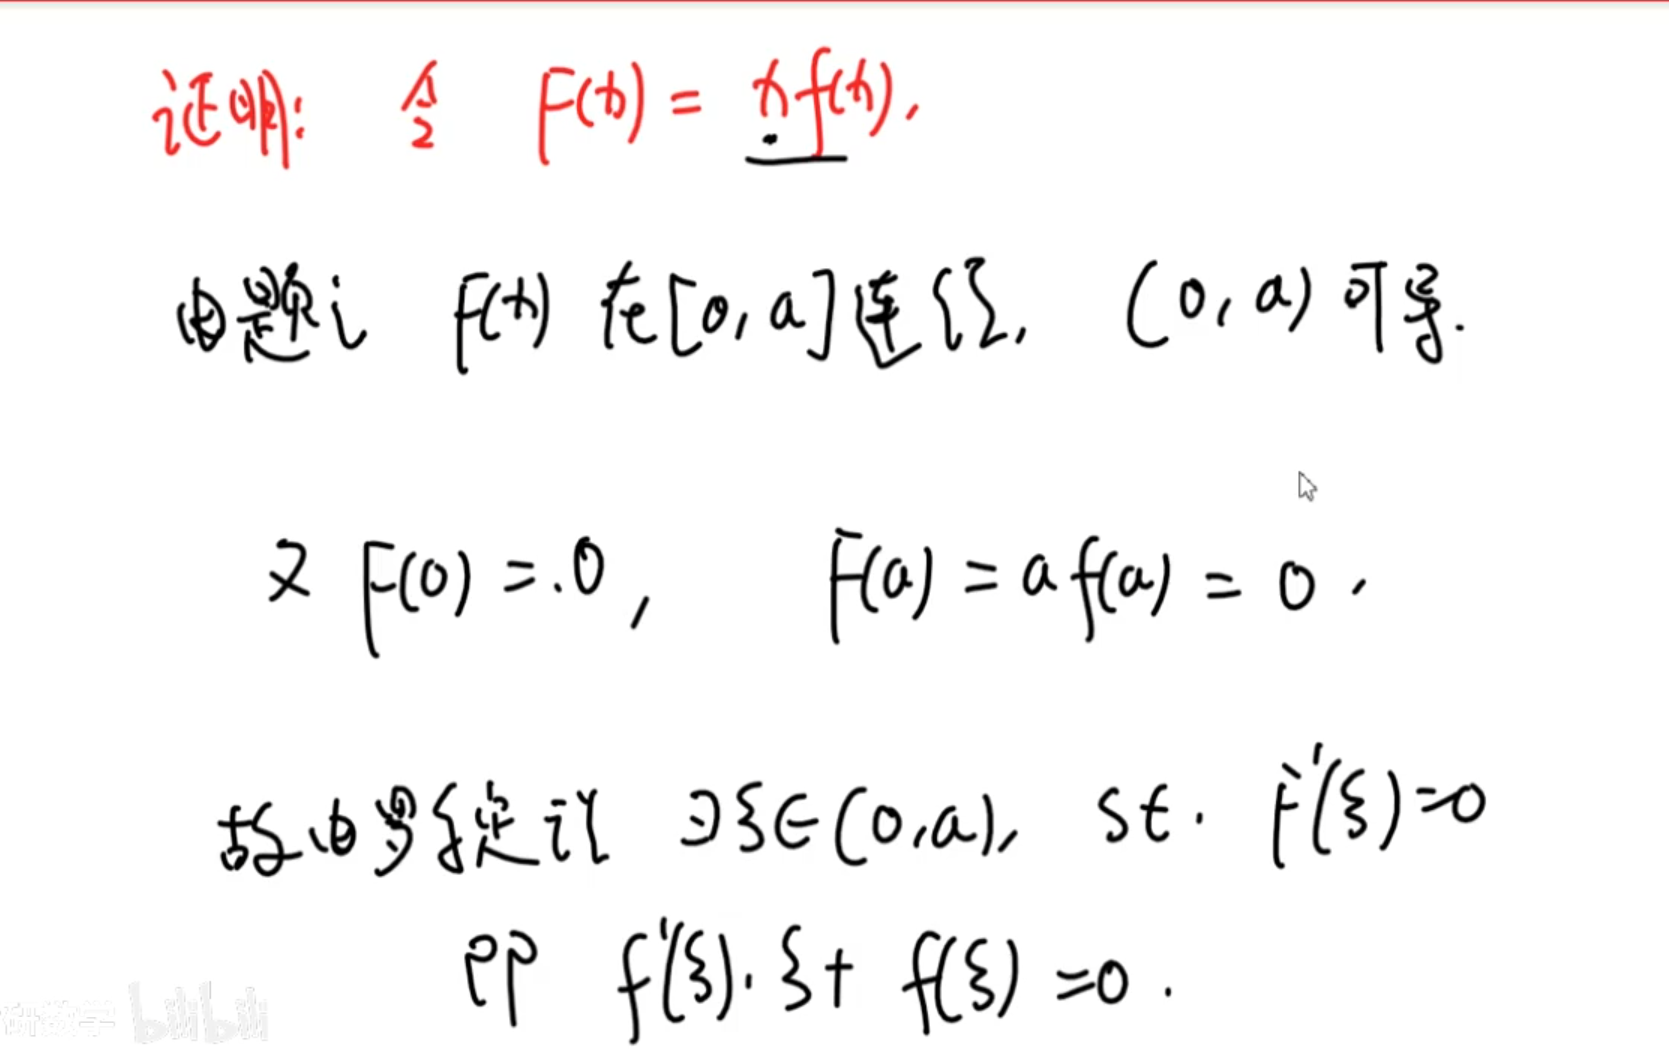 证明: 令 F(x) = xf(x),
由题设 F(x) 在[0,a]连续, (0,a)可导.
又 F(0)=.0, F(a)=af(a)=0,
故由罗尔定理 ∃ξ∈(0,a), st. F'(ξ)=0
即 f'(ξ)·ξ+f(ξ)=0.
研数学 bilibili